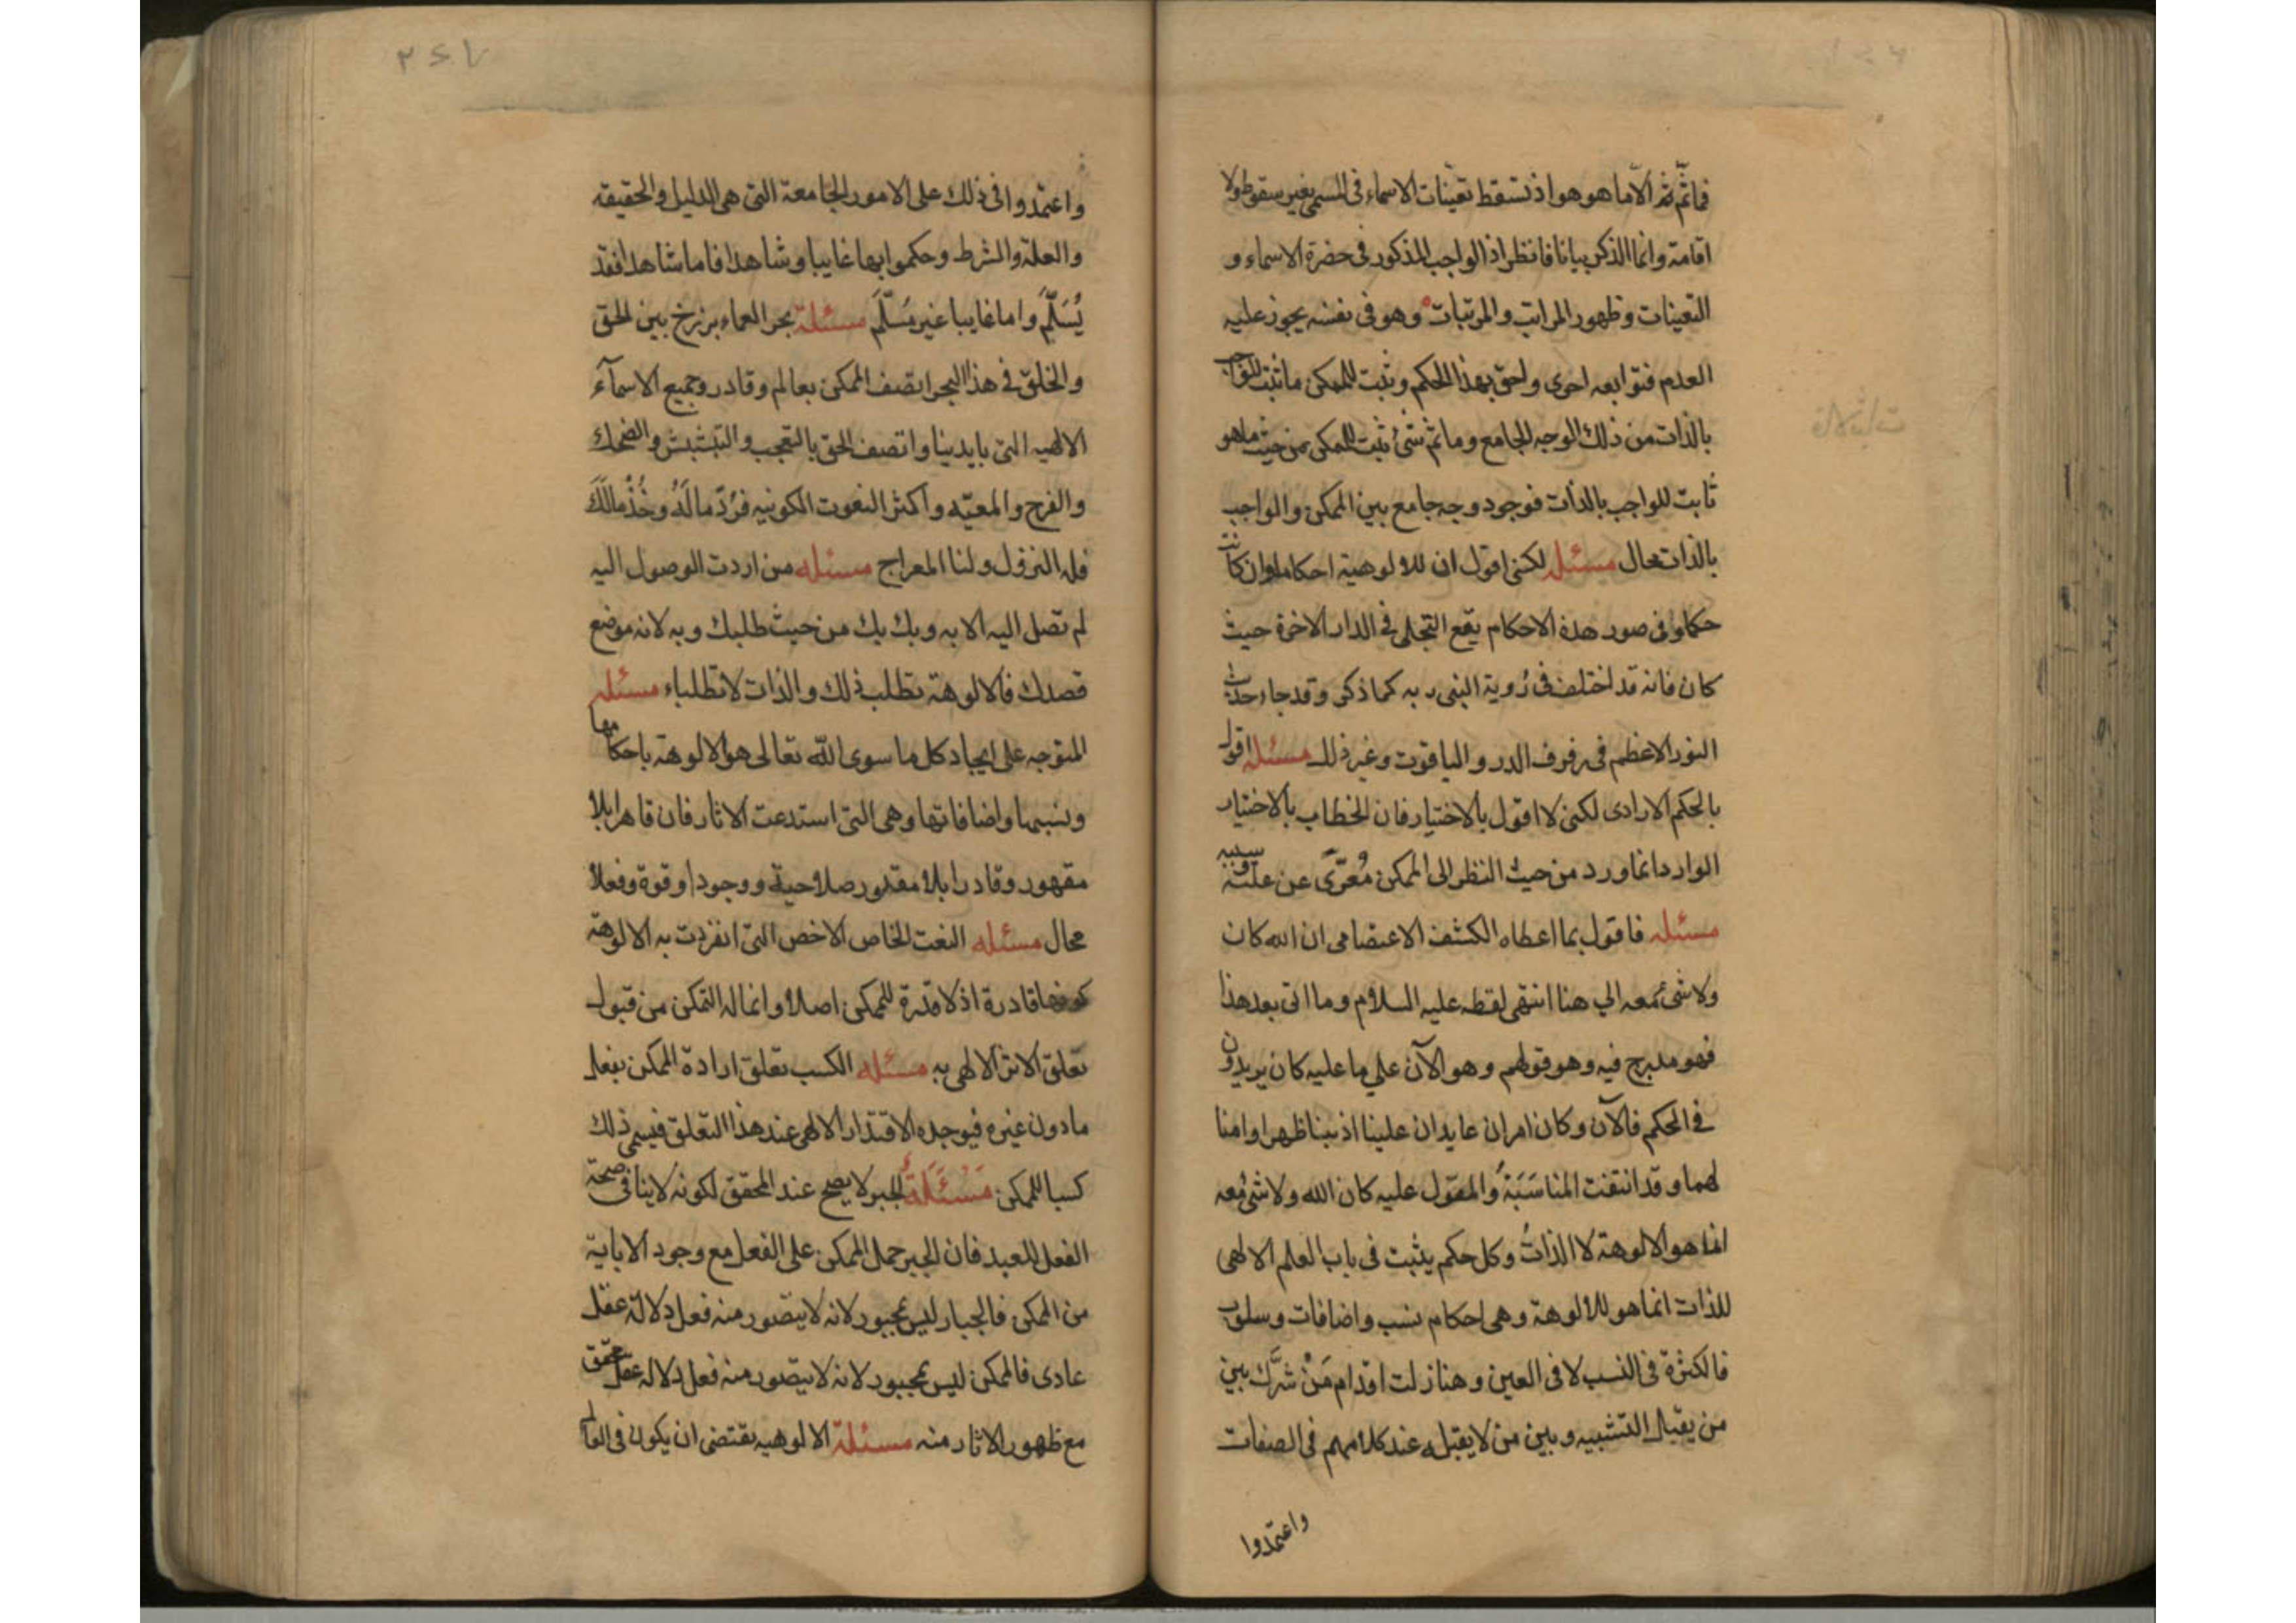 فما ثَمّ ثَمّ الّا ما هو هو اذ تسقط تعيّنات الاسماء فى المسمى بغير سقوط ولا
اقامة وانما الذكر بيانا فانظر اذ الواجب المذكور فى حضرة الاسماء و
التعينات وظهور المراتب والمرتبات وهو فى نفسه يجوز عليه
العدم فتوابعه احرى ولحق بهذا الحكم وثبت للممكن ما ثبت للواجب
بالذات من ذلك الوجه الجامع وما ثم شئ ثبت للممكن من حيث ما هو
ثابت للواجب بالذات فوجود وجه جامع بين الممكن والواجب
بالذات محال مسئله لكنى اقول ان للالوهية احكاما وان كانت
حكما وفى صور هذه الاحكام يقع التجلى فى الدار الاخرة حيث
كان فانه قد اختلف فى رُوية النبى ربه كما ذكر وقد جاء حديث
النور الاعظم فى رفرف الدر والياقوت وغير ذلك مسئله اقول
بالحكم الارادى لكنى لا اقول بالاختيار فان الخطاب بالاختيار
الوارد انما ورد من حيث النظر الى الممكن مُعرّى عن علته وسببه
مسئله فاقول بما اعطاه الكشف الاعتصامى ان الله كان
ولا شئ معه الي هنا انتهى لفظه عليه السلام وما اتى بعد هذا
فهو مدرج فيه وهو قولهم وهو الآن علي ما عليه كان يريدون
فى الحكم فالآن وكان امران عايدان علينا اذ بنا ظهرا وامثا
لهما وقد انتفت المناسَبَةُ والمقول عليه كان الله ولا شئ معه
انما هو الالوهة لا الذاتُ وكل حكم يثبت فى باب العلم الالهى
للذات انما هو للالوهة وهى احكام نسب واضافات وسلوب
فالكثرة فى النسب لا فى العين وهنا زلت اقدام مَنْ شرَّك بين
من يقبل التشبيه وبين من لا يقبله عند كلامهم فى الصفات
واعتمدوا
واعتمدوا فى ذلك على الامور الجامعة التى هى الدليل والحقيقه
والعلة والشرط وحكموا بها غايبا وشاهدا فاما شاهدا فقد
يُسَلّمُ واما غايبا غير مسَلّم مسئلة بحر العماء برزخ بين الحق
والخلق فى هذا البحر اتصف الممكن بعالم وقادر وجميع الاسمآء
الالهيه التى بايدينا واتصف الحق بالتعجب والتبشبش والضحك
والفرح والمعيّه واكثر النعوت الكونيه فرُدّ ما لَهُ وخُذ مالَكَ
فله النزول ولنا المعراج مسئله من اردت الوصول اليه
لم تصل اليه الا به وبك بك من حيث طلبك وبه لانه موضع
قصدك فالالوهة تطلب ذلك والذات لا تطلبه مسئله
المتوجه على ايجاد كل ما سوى الله تعالى هو الالوهة باحكامها
ونسبها واضافاتها وهى التى استدعت الاثار فان قاهرا بلا
مقهور وقادرا بلا مقدور صلاحية ووجودا وقوة وفعلا
محال مسئله النعت الخاص الاخص التى انفردت به الالوهة
كونها قادرة اذ لا قدرة للممكن اصلا وانما له التمكن من قبول
تعلق الاثر الالهى به مسئله الكسب تعلق ارادة الممكن بفعل
ما دون غيره فيوجده الاقتدار الالهى عند هذا التعلق فيسمى ذلك
كسبا للممكن مَسْئَلَةُ الجبر لا يصح عند المحقق لكونه لا ينافى صحة
الفعل للعبد فان الجبر حمل الممكن على الفعل مع وجود الاباية
من الممكن فالجبار ليس بمجبور لانه لا يتصور منه فعل دلالة عقل
عادى فالممكن ليس بمجبور لانه لا يتصور منه فعل دلاله عقل محقق
مع ظهور الاثار منه مسئلة الالوهيه تقتضى ان يكون فى العالم